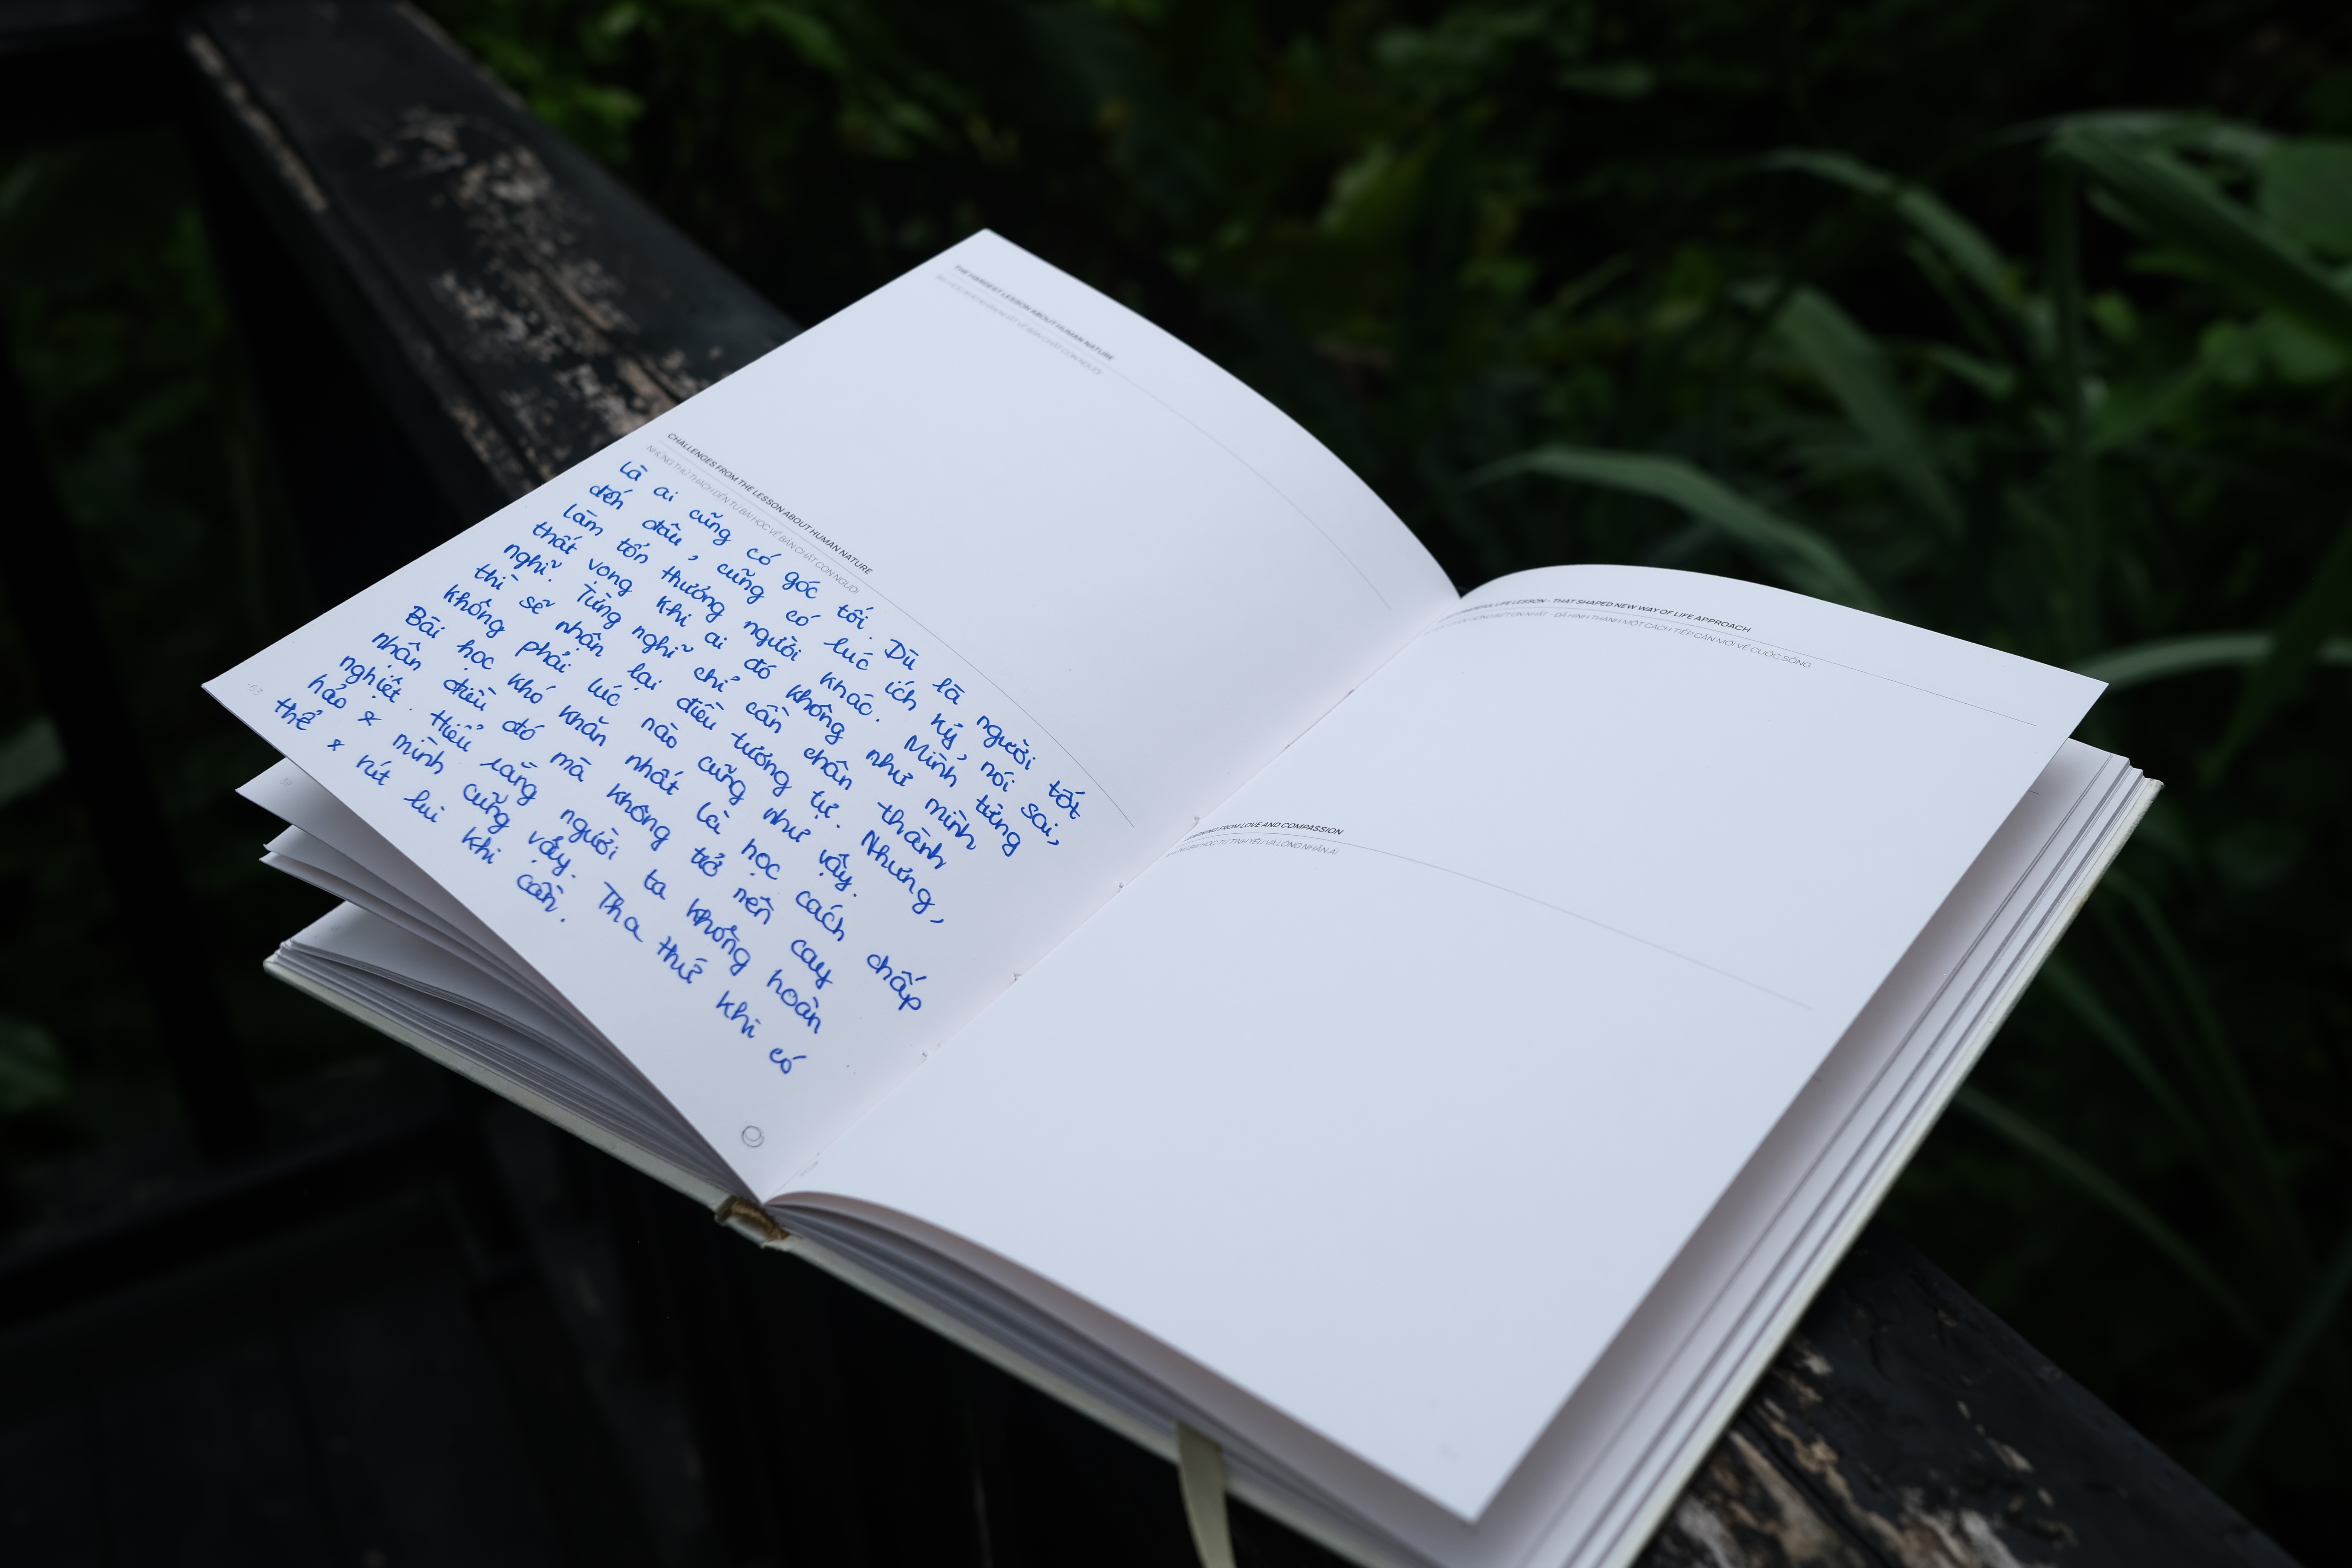 THE HARDEST LESSON ABOUT HUMAN NATURE
BÀI HỌC KHÓ KHĂN NHẤT VỀ BẢN CHẤT CON NGƯỜI
CHALLENGES FROM THE LESSON ABOUT HUMAN NATURE
NHỮNG THỬ THÁCH ĐẾN TỪ BÀI HỌC VỀ BẢN CHẤT CON NGƯỜI
Là ai cũng có góc tối. Dù là người tốt
đến đâu, cũng có lúc ích kỷ, nói sai,
làm tổn thương người khác. Mình từng
thất vọng khi ai đó không như mình
nghĩ. Từng nghĩ chỉ cần chân thành
thì sẽ nhận lại điều tương tự. Nhưng,
không phải lúc nào cũng như vậy.
Bài học khó khăn nhất là học cách chấp
nhận điều đó mà không trở nên cay
nghiệt. Hiểu rằng người ta không hoàn
hảo & mình cũng vậy. Tha thứ khi có
thể & rút lui khi cần.
153
LIFE LESSON - THAT SHAPED NEW WAY OF LIFE APPROACH
NHẤT - ĐÃ HÌNH THÀNH MỘT CÁCH TIẾP CẬN MỚI VỀ CUỘC SỐNG
FROM LOVE AND COMPASSION
BÀI HỌC TỪ TÌNH YÊU VÀ LÒNG NHÂN ÁI